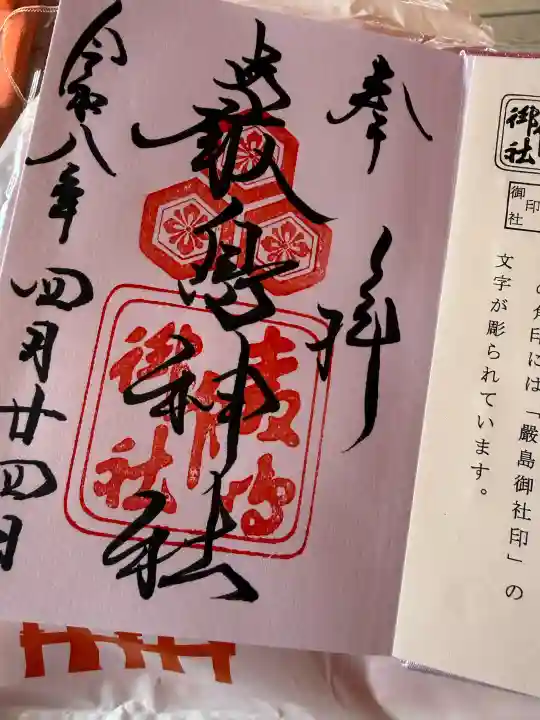 御
社
御印社
の角印には「嚴島御社印」の
文字が彫られています。
奉拜
嚴島神社
令和八年四月廿四日
嚴島
御社印